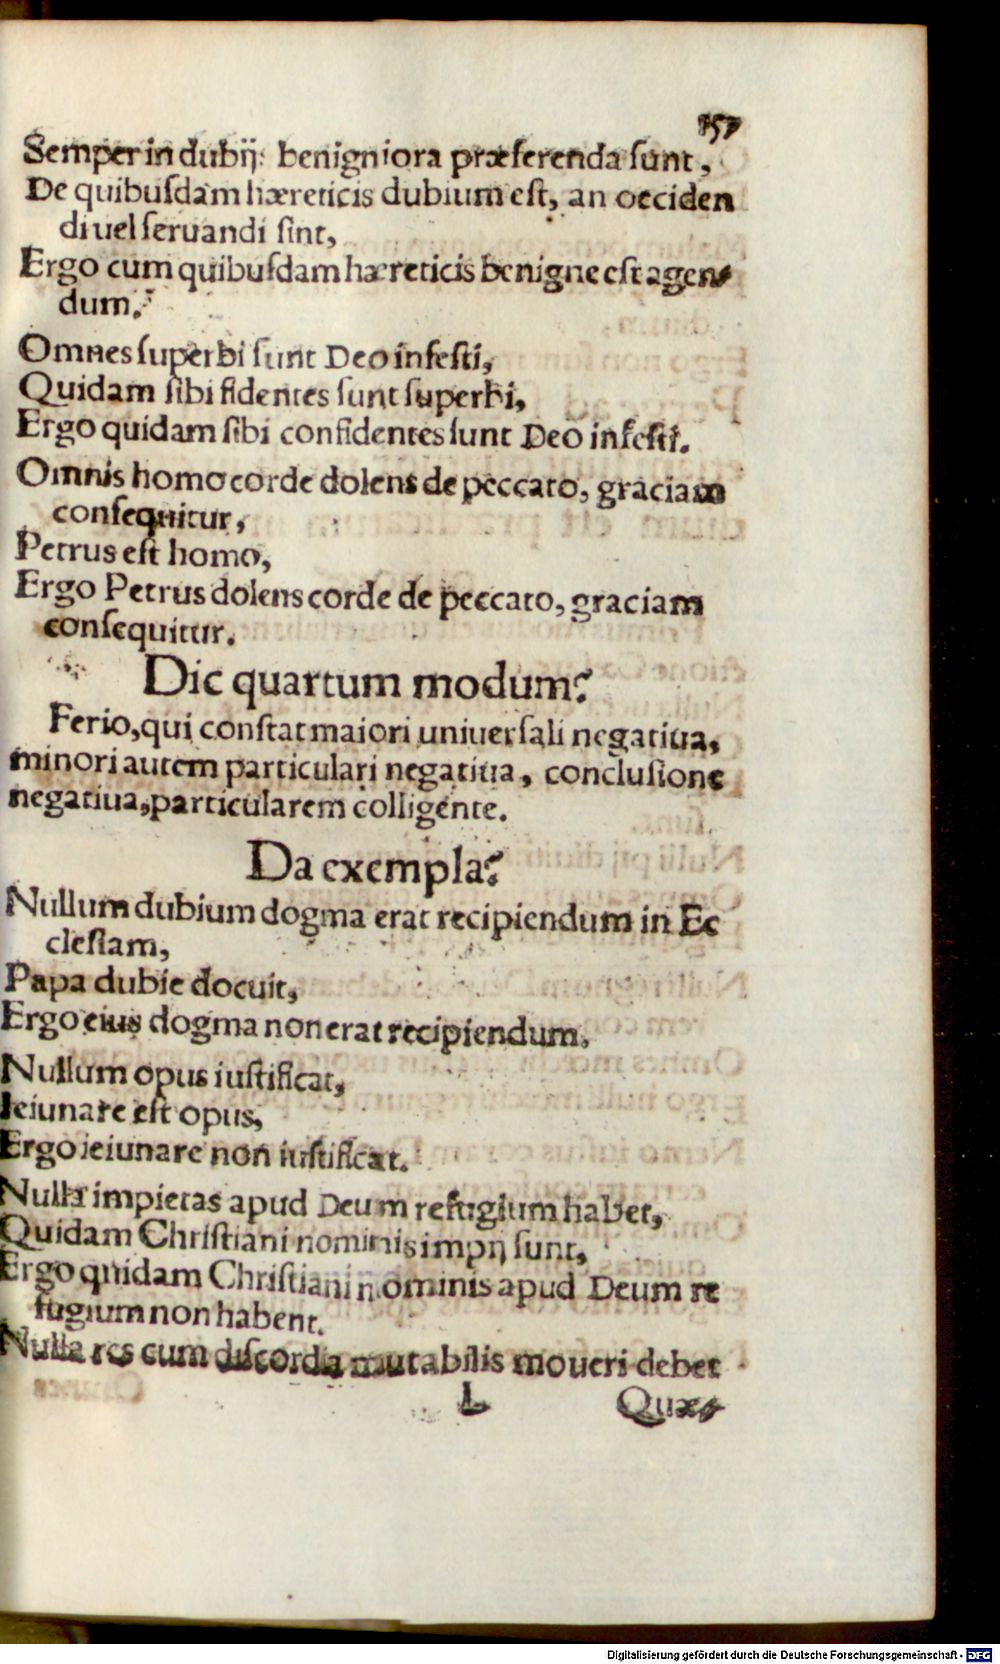 157
Semper in dubijs benigniora præferenda sunt,
De quibusdam hæreticis dubium est, an occiden
di uel seruandi sint,
Ergo cum quibusdam hæreticis benigne est agen-
dum.
Omnes superbi sunt Deo infesti,
Quidam sibi fidentes sunt superbi,
Ergo quidam sibi confidentes sunt Deo infesti.
Omnis homo corde dolens de peccato, graciam
consequitur,
Petrus est homo,
Ergo Petrus dolens corde de peccato, graciam
consequitur.
Dic quartum modum?
Ferio, qui constat maiori uniuersali negatiua,
minori autem particulari negatiua, conclusione
negatiua, particularem colligente.
Da exempla?
Nullum dubium dogma erat recipiendum in Ec
clesiam,
Papa dubie docuit,
Ergo eius dogma non erat recipiendum.
Nullum opus iustificat,
Ieiunare est opus,
Ergo ieiunare non iustificat.
Nulla impietas apud Deum refugium habet,
Quidam Christiani nominis impij sunt,
Ergo quidam Christiani nominis apud Deum re
fugium non habent.
Nulla res cum discordia mutabilis moueri debet
L Quæ-
Digitalisierung gefördert durch die Deutsche Forschungsgemeinschaft - DFG